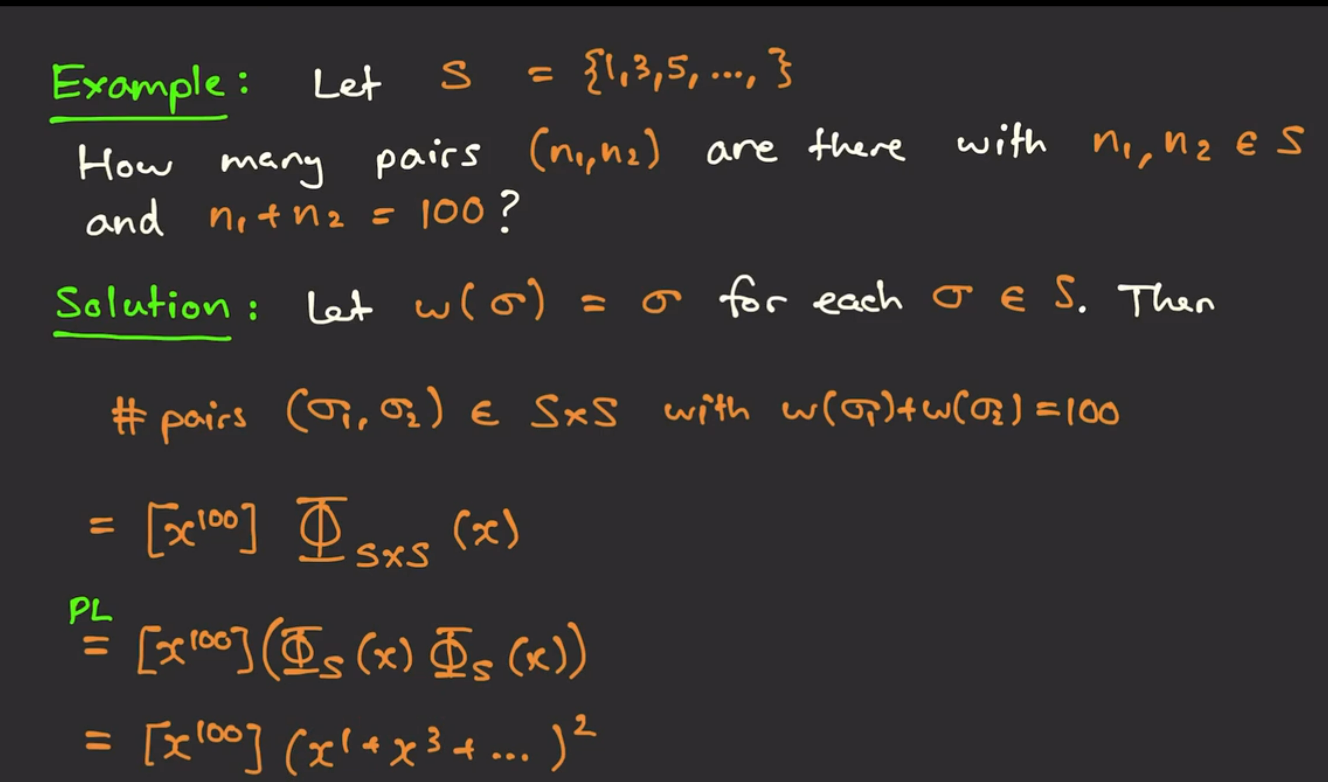 Example: Let S = {1,3,5, ..., }
How many pairs (n₁,n₂) are there with n₁, n₂ ∈ S
and n₁ + n₂ = 100?
Solution: Let w(σ) = σ for each σ ∈ S. Then
# pairs (σ₁, σ₂) ∈ S×S with w(σ₁)+w(σ₂) = 100
= [x¹⁰⁰] Φ_{S×S} (x)
PL
= [x¹⁰⁰](Φ_S (x) Φ_S (x))
= [x¹⁰⁰] (x¹ + x³ + ... )²